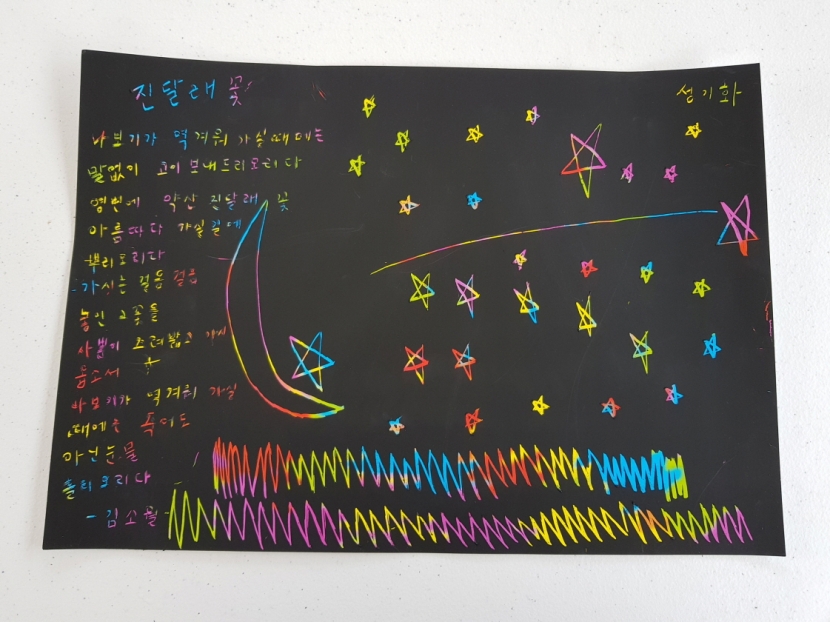 진달래꽃
섬기화
나보기가 역겨워 가실때에는
말없이 고이 보내드리오리다
영변에 약산 진달래 꽃
아름따다 가실길에
뿌리오리다
가시는 걸음걸음
놓인 그꽃을
사뿐이 즈려밟고 가시
옵소서
나보기가 역겨워 가실
때에는 죽어도
아닌눈물
흘리오리다
- 김소월 -